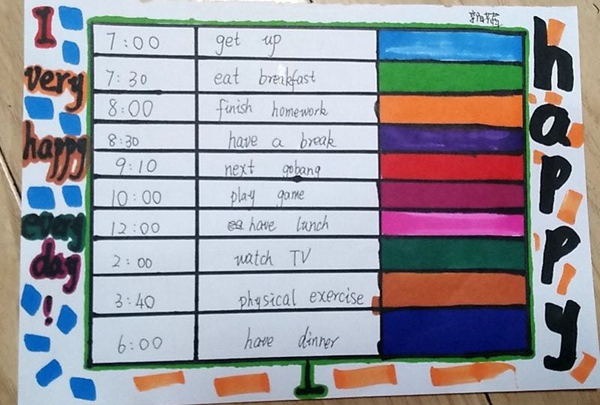 I
very
happy
every
day
!
7:00 get up
7:30 eat breakfast
8:00 finish homework
8:30 have a break
9:10 next gobang
10:00 play game
12:00 have lunch
2:00 watch TV
3:40 physical exercise
6:00 have dinner
happy